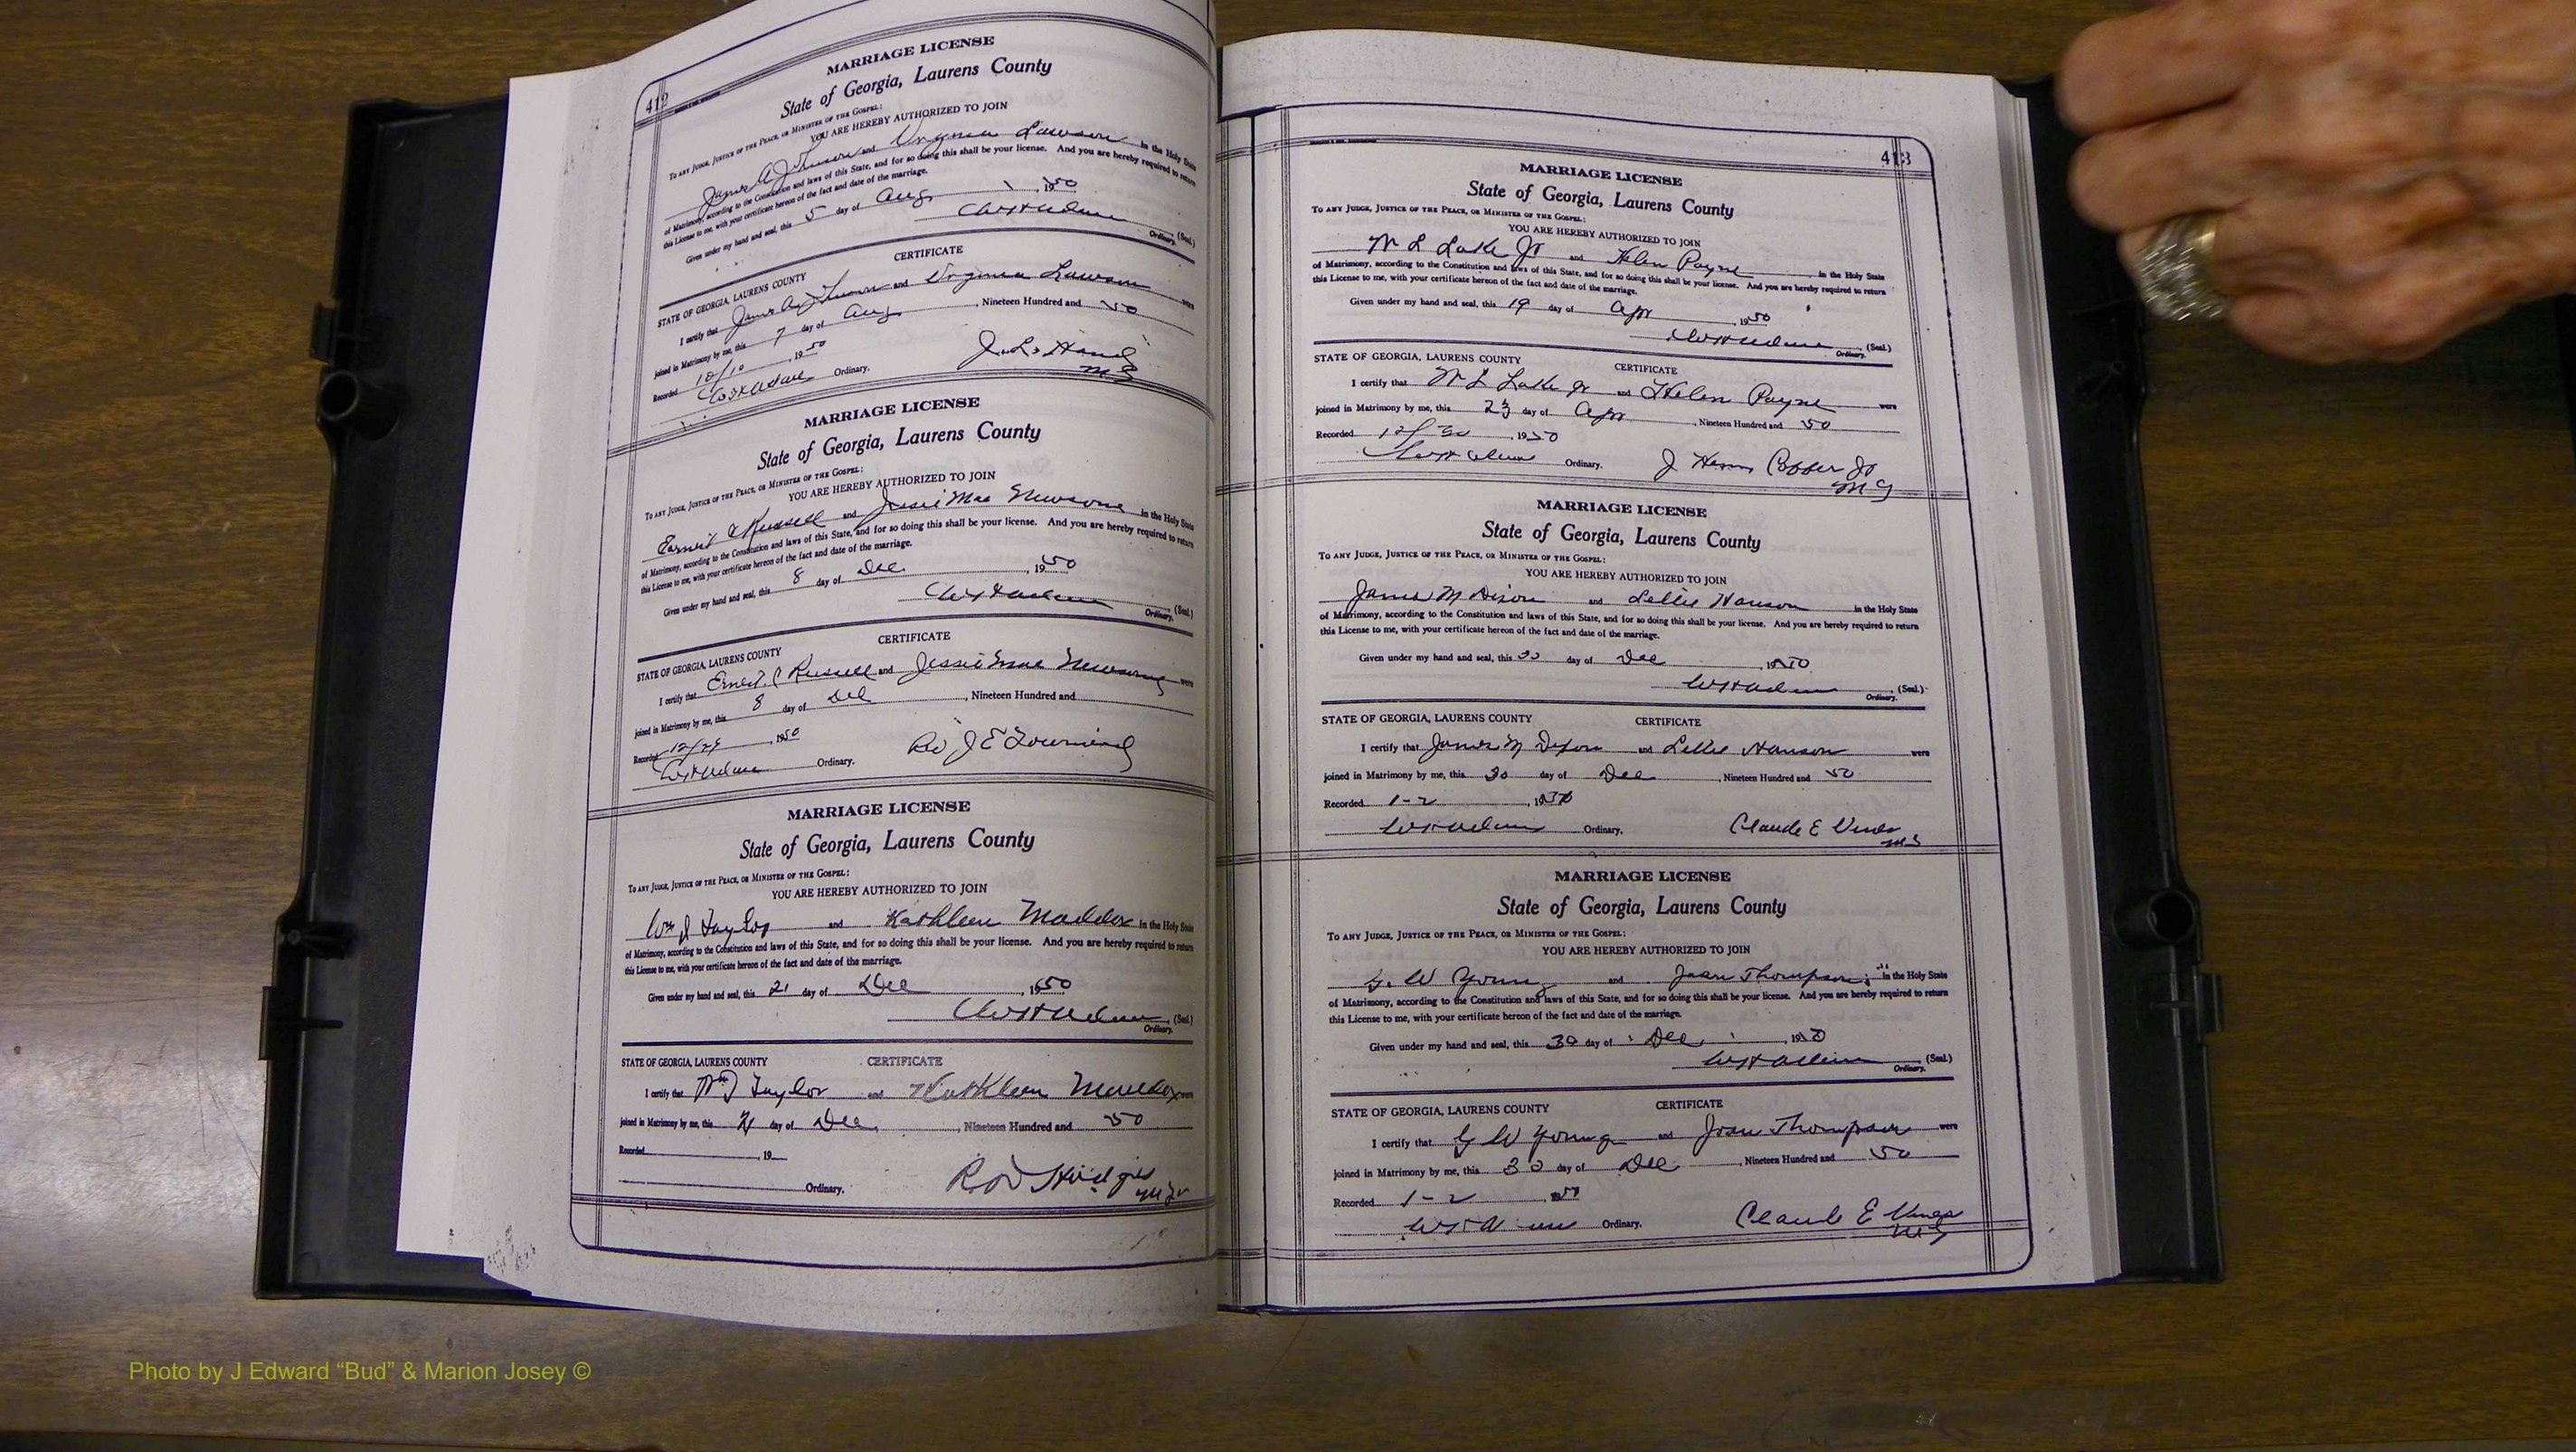 412
MARRIAGE LICENSE
State of Georgia, Laurens County
TO ANY JUDGE, JUSTICE OF THE PEACE, OR MINISTER OF THE GOSPEL:
YOU ARE HEREBY AUTHORIZED TO JOIN
James A Johnson and Virginia Lawson in the Holy State
of Matrimony, according to the Constitution and laws of this State, and for so doing this shall be your license. And you are hereby required to return
this License to me, with your certificate hereon of the fact and date of the marriage.
Given under my hand and seal, this 5 day of Aug, 1950
(Seal.)
Ordinary.
CERTIFICATE
STATE OF GEORGIA, LAURENS COUNTY
I certify that James and Virginia Lawson were
joined in Matrimony by me, this 7 day of Aug, Nineteen Hundred and 50
Recorded 10/10, 1950
Ordinary.
MARRIAGE LICENSE
State of Georgia, Laurens County
TO ANY JUDGE, JUSTICE OF THE PEACE, OR MINISTER OF THE GOSPEL:
YOU ARE HEREBY AUTHORIZED TO JOIN
Russell and Jessie Mae Newsome in the Holy State
of Matrimony, according to the Constitution and laws of this State, and for so doing this shall be your license. And you are hereby required to return
this License to me, with your certificate hereon of the fact and date of the marriage.
Given under my hand and seal, this 8 day of Dec, 1950
(Seal.)
Ordinary.
CERTIFICATE
STATE OF GEORGIA, LAURENS COUNTY
I certify that Ernest C Russell and Jessie Mae Newsome were
joined in Matrimony by me, this 8 day of Dec, Nineteen Hundred and
Recorded 12/29, 1950
Ordinary.
Rev J E Townsend
MARRIAGE LICENSE
State of Georgia, Laurens County
TO ANY JUDGE, JUSTICE OF THE PEACE, OR MINISTER OF THE GOSPEL:
YOU ARE HEREBY AUTHORIZED TO JOIN
Wm J Taylor and Kathleen Maddox in the Holy State
of Matrimony, according to the Constitution and laws of this State, and for so doing this shall be your license. And you are hereby required to return
this License to me, with your certificate hereon of the fact and date of the marriage.
Given under my hand and seal, this 21 day of Dec, 1950
(Seal.)
Ordinary.
STATE OF GEORGIA, LAURENS COUNTY CERTIFICATE
I certify that Wm J Taylor and Kathleen Maddox were
joined in Matrimony by me, this 21 day of Dec, Nineteen Hundred and 50
Recorded , 19
Ordinary.
413
MARRIAGE LICENSE
State of Georgia, Laurens County
TO ANY JUDGE, JUSTICE OF THE PEACE, OR MINISTER OF THE GOSPEL:
YOU ARE HEREBY AUTHORIZED TO JOIN
W L Lake Jr and Helen Payne in the Holy State
of Matrimony, according to the Constitution and laws of this State, and for so doing this shall be your license. And you are hereby required to return
this License to me, with your certificate hereon of the fact and date of the marriage.
Given under my hand and seal, this 19 day of Apr 1950
(Seal.)
Ordinary.
STATE OF GEORGIA, LAURENS COUNTY
CERTIFICATE
I certify that W L Lake Jr and Helen Payne were
joined in Matrimony by me, this 23 day of Apr, Nineteen Hundred and 50
Recorded 12/30, 1950
Ordinary.
MG
MARRIAGE LICENSE
State of Georgia, Laurens County
TO ANY JUDGE, JUSTICE OF THE PEACE, OR MINISTER OF THE GOSPEL:
YOU ARE HEREBY AUTHORIZED TO JOIN
James M Dixon and Lellie Hanson in the Holy State
of Matrimony, according to the Constitution and laws of this State, and for so doing this shall be your license. And you are hereby required to return
this License to me, with your certificate hereon of the fact and date of the marriage.
Given under my hand and seal, this 30 day of Dec, 1950
(Seal.)
Ordinary.
STATE OF GEORGIA, LAURENS COUNTY CERTIFICATE
I certify that James M Dixon and Lellie Hanson were
joined in Matrimony by me, this 30 day of Dec, Nineteen Hundred and 50
Recorded 1-2, 19
Ordinary.
Claude E Vines
MG
MARRIAGE LICENSE
State of Georgia, Laurens County
TO ANY JUDGE, JUSTICE OF THE PEACE, OR MINISTER OF THE GOSPEL:
YOU ARE HEREBY AUTHORIZED TO JOIN
G. W Young and Joan Thompson in the Holy State
of Matrimony, according to the Constitution and laws of this State, and for so doing this shall be your license. And you are hereby required to return
this License to me, with your certificate hereon of the fact and date of the marriage.
Given under my hand and seal, this 30 day of Dec, 1950
(Seal.)
Ordinary.
STATE OF GEORGIA, LAURENS COUNTY CERTIFICATE
I certify that G W Young and Joan Thompson were
joined in Matrimony by me, this 30 day of Dec, Nineteen Hundred and 50
Recorded 1-2
Ordinary.
Claude E Vines
MG
Photo by J Edward “Bud” & Marion Josey ©